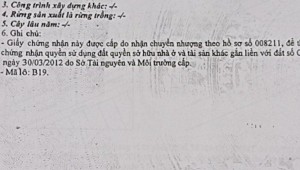 3. Công trình xây dựng khác: -/-
4. Rừng sản xuất là rừng trồng: -/-
5. Cây lâu năm: -/-
6. Ghi chú:
- Giấy chứng nhận này được cấp do nhận chuyển nhượng theo hồ sơ số 008211, để
chứng nhận quyền sử dụng đất quyền sở hữu nhà ở và tài sản khác gắn liền với đất số
ngày 30/03/2012 do Sở Tài nguyên và Môi trường cấp.
- Mã lô: B19.